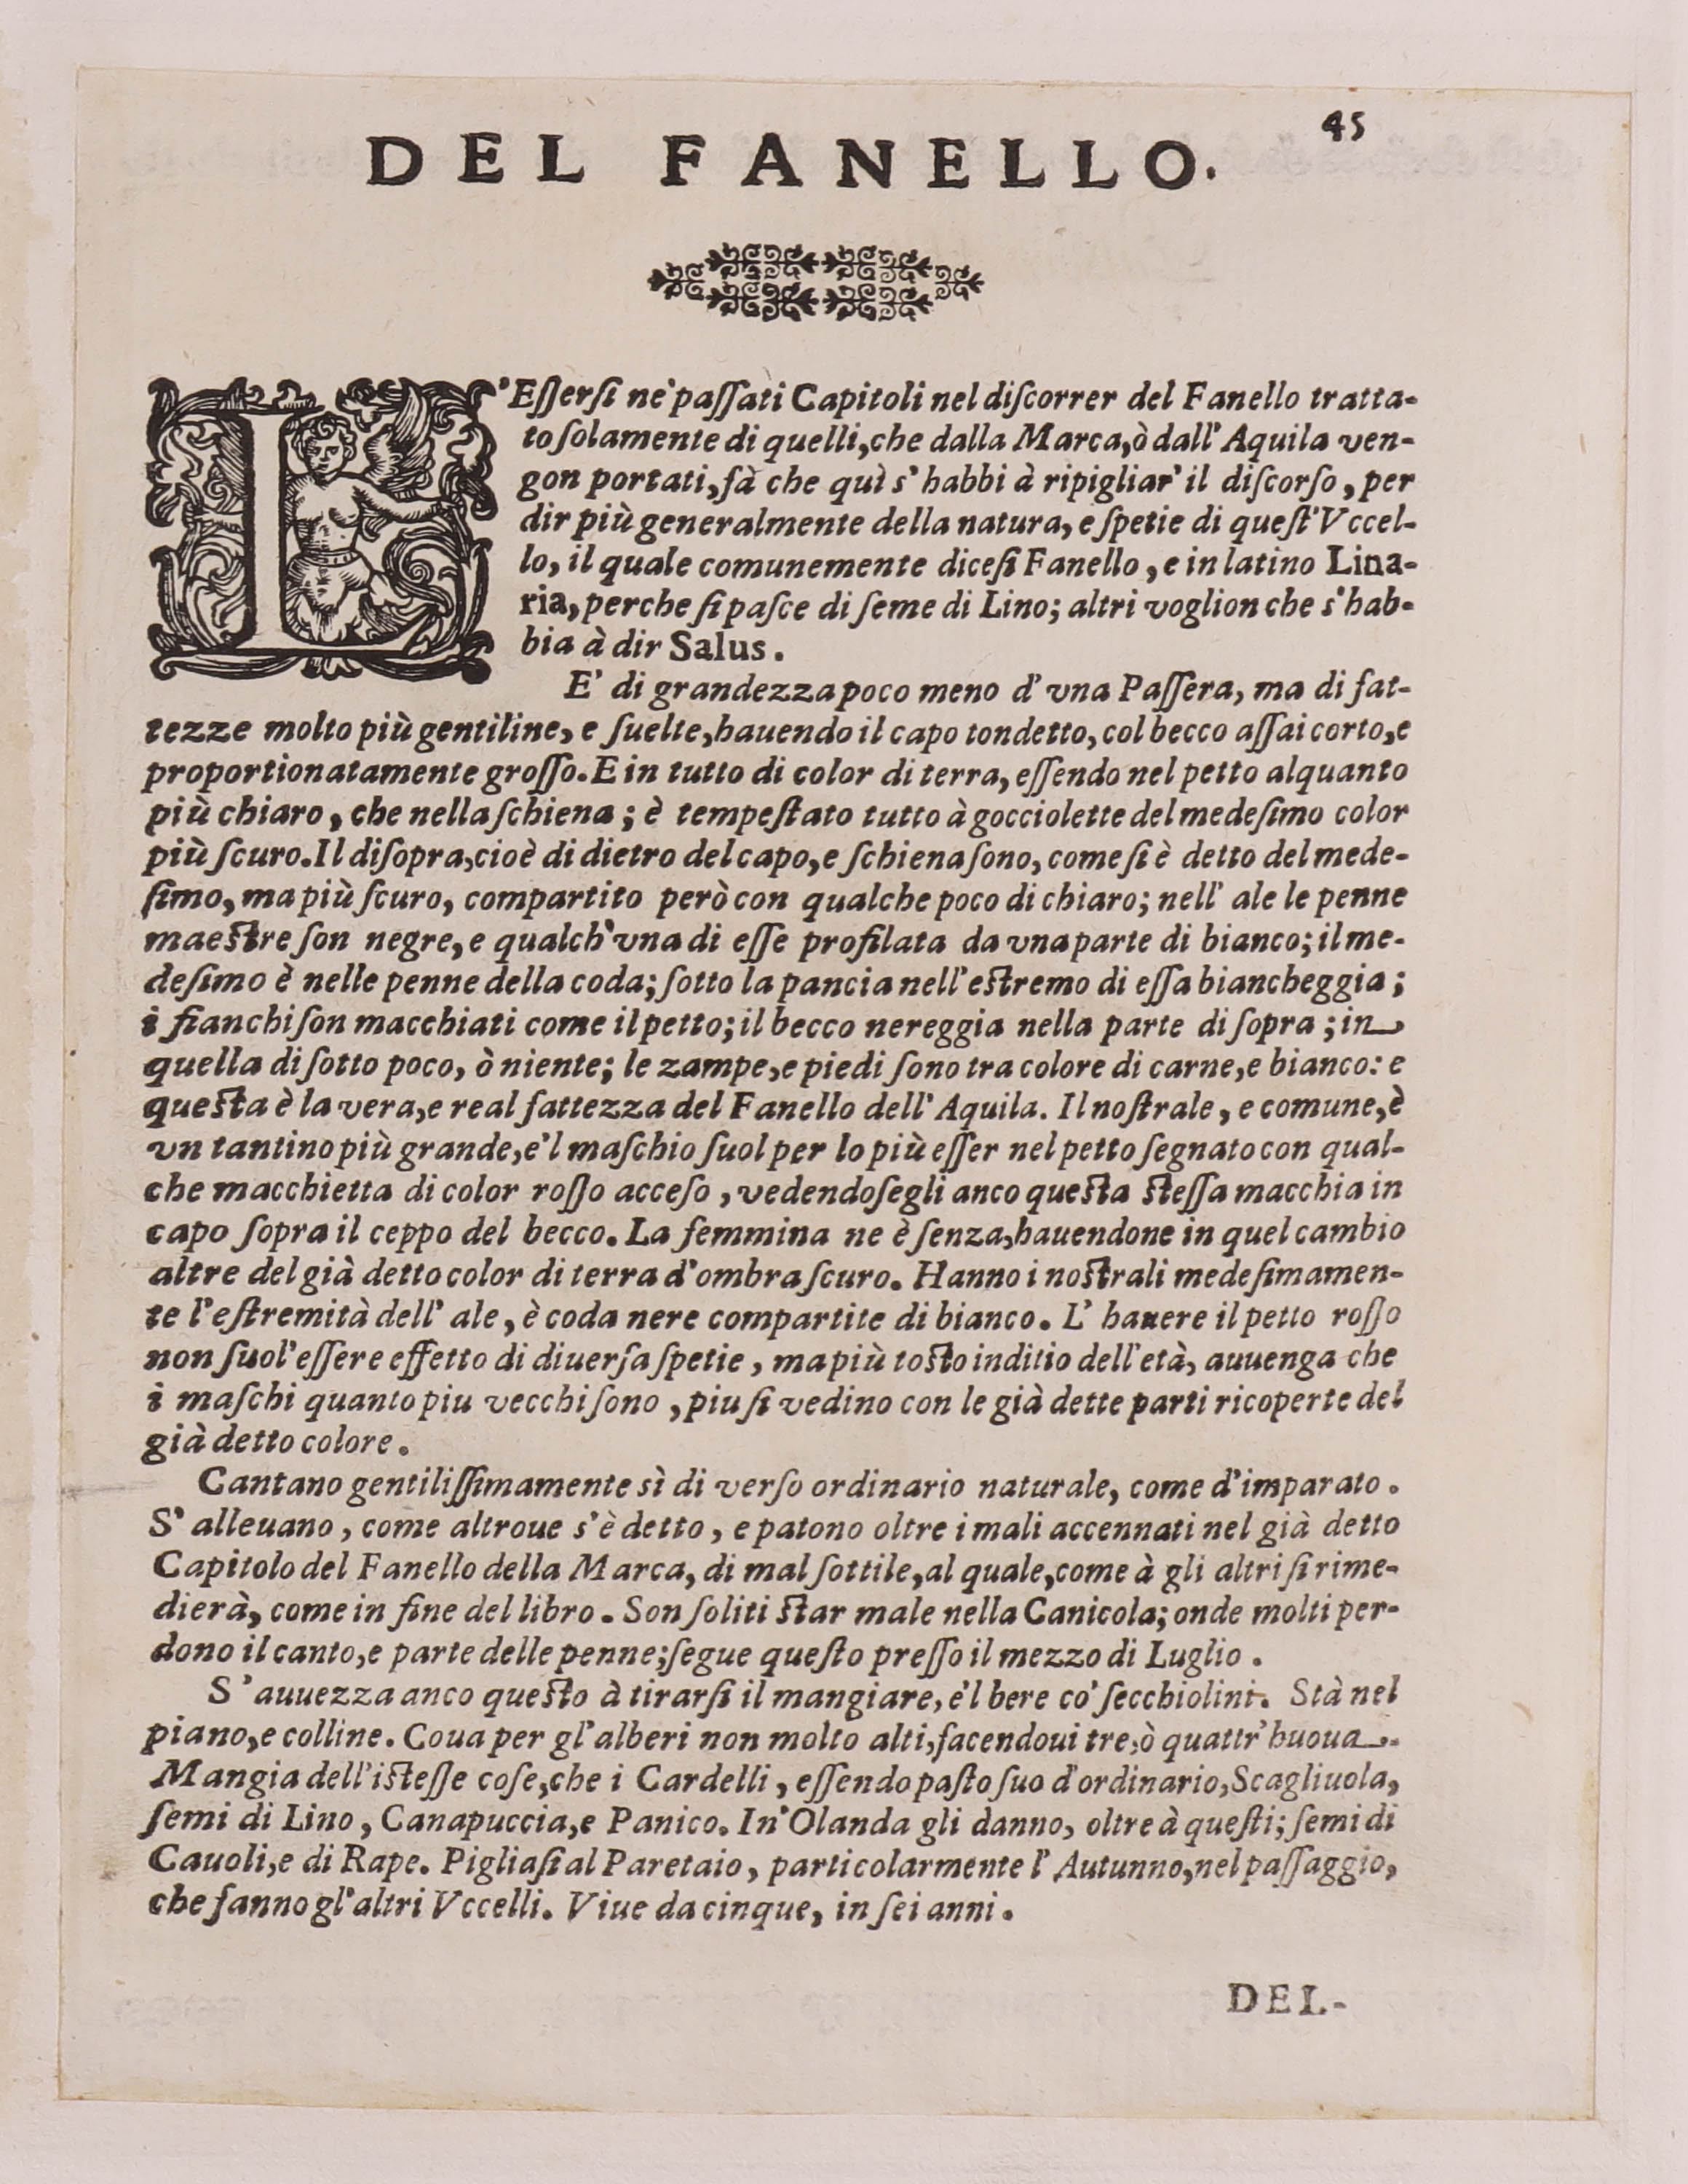 45
DEL FANELLO.
L'Eſſerſi ne' paſſati Capitoli nel diſcorrer del Fanello tratta-
to ſolamente di quelli, che dalla Marca, ò dall' Aquila ven-
gon portati, fà che quì s' habbi à ripigliar' il diſcorſo, per
dir più generalmente della natura, e ſpetie di queſt' Vccel-
lo, il quale comunemente diceſi Fanello, e in latino Lina-
ria, perche ſi paſce di ſeme di Lino; altri voglion che s'hab-
bia à dir Salus.
E' di grandezza poco meno d' vna Paſſera, ma di fat-
tezze molto più gentiline, e ſuelte, hauendo il capo tondetto, col becco aſſai corto, e
proportionatamente groſſo. E in tutto di color di terra, eſſendo nel petto alquanto
più chiaro, che nella ſchiena; è tempeſtato tutto à gocciolette del medeſimo color
più ſcuro. Il diſopra, cioè di dietro del capo, e ſchiena ſono, come ſi è detto del mede-
ſimo, ma più ſcuro, compartito però con qualche poco di chiaro; nell' ale le penne
maeſtre ſon negre, e qualch' vna di eſſe profilata da vna parte di bianco; il me-
deſimo è nelle penne della coda; ſotto la pancia nell'eſtremo di eſſa biancheggia;
i fianchi ſon macchiati come il petto; il becco nereggia nella parte di ſopra; in
quella di ſotto poco, ò niente; le zampe, e piedi ſono tra colore di carne, e bianco: e
queſta è la vera, e real fattezza del Fanello dell' Aquila. Il noſtrale, e comune, è
vn tantino più grande, e'l maſchio ſuol per lo più eſſer nel petto ſegnato con qual-
che macchietta di color roſſo acceſo, vedendoſegli anco queſta ſteſſa macchia in
capo ſopra il ceppo del becco. La femmina ne è ſenza, hauendone in quel cambio
altre del già detto color di terra d'ombra ſcuro. Hanno i noſtrali medeſimamen-
te l'eſtremità dell' ale, è coda nere compartite di bianco. L' hauere il petto roſſo
non ſuol'eſſere effetto di diuerſa ſpetie, ma più toſto inditio dell'età, auuenga che
i maſchi quanto piu vecchi ſono, piu ſi vedino con le già dette parti ricoperte del
già detto colore.
Cantano gentiliſſimamente sì di verſo ordinario naturale, come d'imparato.
S' alleuano, come altroue s'è detto, e patono oltre i mali accennati nel già detto
Capitolo del Fanello della Marca, di mal ſottile, al quale, come à gli altri ſi rime-
dierà, come in fine del libro. Son ſoliti ſtar male nella Canicola; onde molti per-
dono il canto, e parte delle penne; ſegue queſto preſſo il mezzo di Luglio.
S' auuezza anco queſto à tirarſi il mangiare, e'l bere co' ſecchiolini. Stà nel
piano, e colline. Coua per gl' alberi non molto alti, facendoui tre, ò quattr' huoua.
Mangia dell'iſteſſe coſe, che i Cardelli, eſſendo paſto ſuo d'ordinario, Scagliuola,
ſemi di Lino, Canapuccia, e Panico. In' Olanda gli danno, oltre à queſti; ſemi di
Cauoli, e di Rape. Pigliaſi al Paretaio, particolarmente l' Autunno, nel paſſaggio,
che fanno gl'altri Vccelli. Viue da cinque, in ſei anni.
DEL-